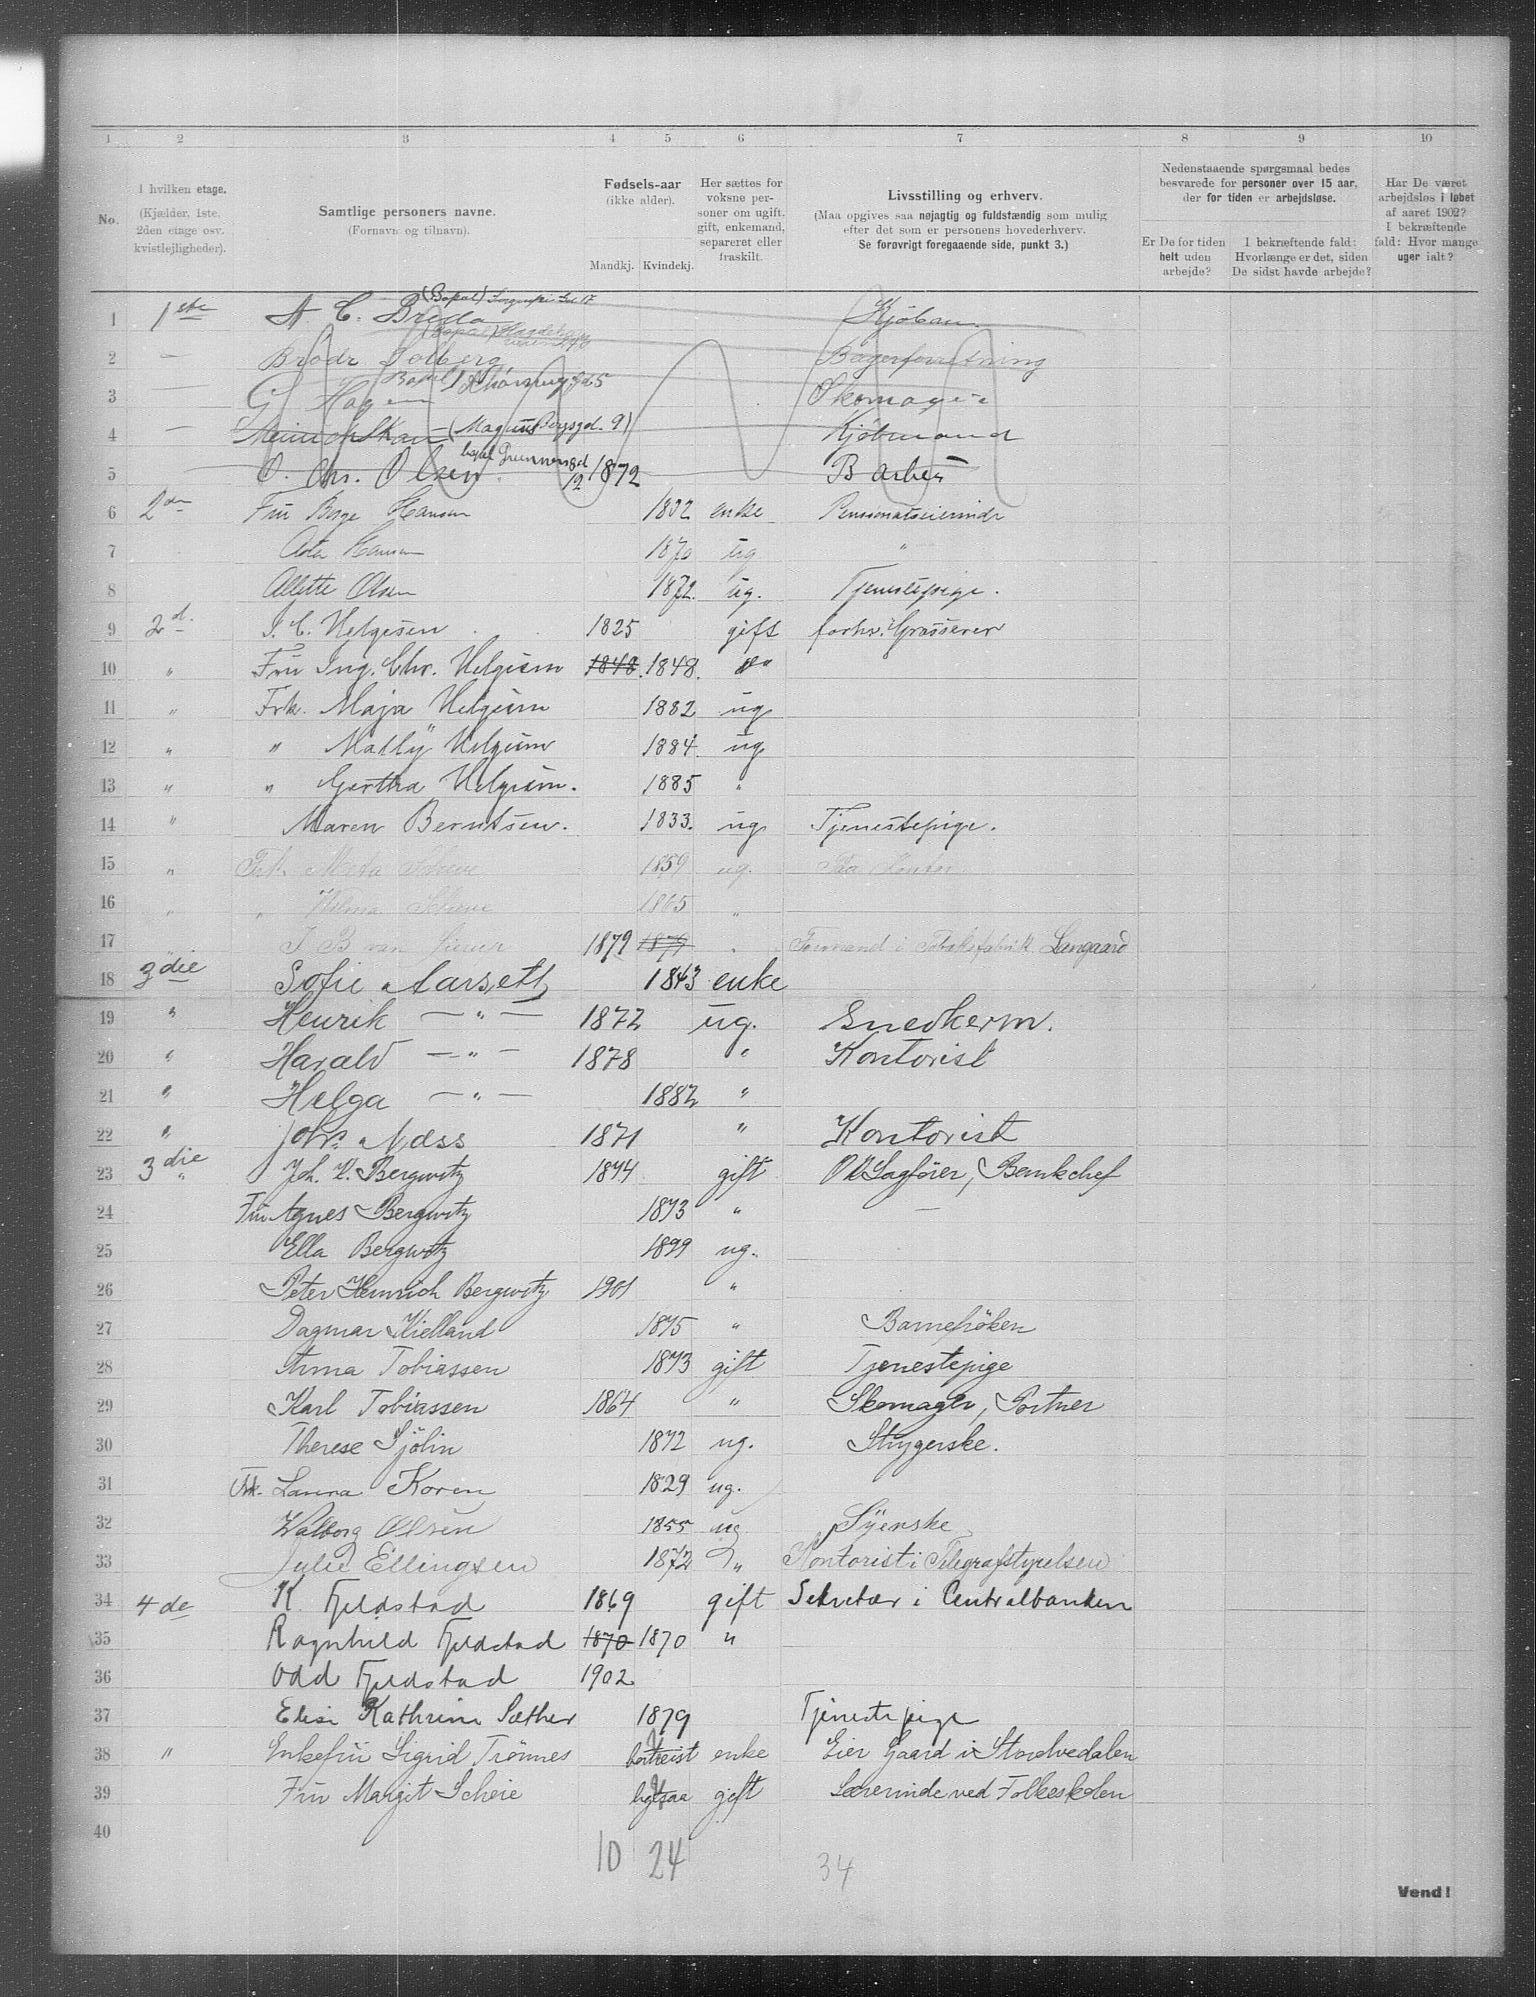 1 2 3 4 5 6 7 8 9 10
No.
I hvilken etage.
(Kjælder, 1ste, 2den etage osv. kvistlejligheder).
Samtlige personers navne.
(Fornavn og tilnavn).
Fødsels-aar
(ikke alder).
Mandkj. Kvindekj.
Her sættes for voksne personer om ugift, gift, enkemand, separeret eller fraskilt.
Livsstilling og erhverv.
(Maa opgives saa nøjagtig og fuldstændig som mulig efter det som er personens hovederhverv.
Se forøvrigt foregaaende side, punkt 3.)
Nedenstaaende spørgsmaal bedes besvarede for personer over 15 aar, der for tiden er arbejdsløse.
Er De for tiden helt uden arbejde?
I bekræftende fald: Hvorlænge er det, siden De sidst havde arbejde?
Har De været arbejdsløs i løbet af aaret 1902? I bekræftende fald: Hvor mange uger ialt?
1 1ste A C. Breda (Bopæl) Kjøbm.
2 — Brødr Solberg (Bopæl) Bagerforretning
3 — G Hagen Bopæl Skomager
4 — (Magnus Bergsgd. 9) Kjøbmand
5 O. Chr. Olsen bopæl 12 1872 Barber
6 2den Fru Borge Hansen 1832 enke Pensionatseierinde
7 Asta Hansen 1870 ug "
8 Allette Olsen 1872. ug. Tjenestepige.
9 2d. I. C. Helgesen 1825 gift forhv. Grosserer
10 " Fru Ing. Chr. Helgesen 1848. 1848. "
11 " Frk. Maja Helgesen 1882 ug
12 " " Mally Helgesen 1884 ug
13 " " Gertha Helgesen. 1885 "
14 " Maren Berntsen. 1833. ug Tjenestepige.
15 " Frk. Meta 1859 ug. Paa Kontor
16 " " 1865 "
17 I B van 1879 1879 " Formand i Tobaksfabrik Langaard
18 3die Sofie Aarseth 1843 enke
19 " Henrik — " — 1872 ug. Snedkerm.
20 " Harald — " — 1878 " Kontorist
21 " Helga — " — 1882 "
22 " Joh. Næss 1871 " Kontorist
23 3die " Joh. K. Bergwitz 1874 gift ORSagfører, Bankchef
24 Fru Agnes Bergwitz 1873 " —
25 Ella Bergwitz 1899 ug.
26 Peter Heinrich Bergwitz 1901 "
27 Dagmar Kielland 1875 " Barnefrøken
28 Anna Tobiassen 1873 gift Tjenestepige
29 Karl Tobiassen 1864 " Skomager, Portner
30 Therese Sjölin 1872 ug. Strygerske.
31 Frk. Laura Koren 1829 ug.
32 Walborg Olsen 1855 ug Syerske
33 Julie Ellingsen 1872 " Kontorist i Telegrafstyrelsen
34 4de K. Fjeldstad 1869 gift Sekretær i Centralbanken
35 Ragnhild Fjeldstad 1870 1870 "
36 Odd Fjeldstad 1902
37 Elise Kathrine Sæther 1879 Tjenestepige
38 " Enkefru Sigrid Trönnes bortreist enke Eier Gaard i Stordvedalen
39 Fru Margit Scheie ligesaa gift Lærerinde ved Folkeskolen
40
10 24 34
Vend!